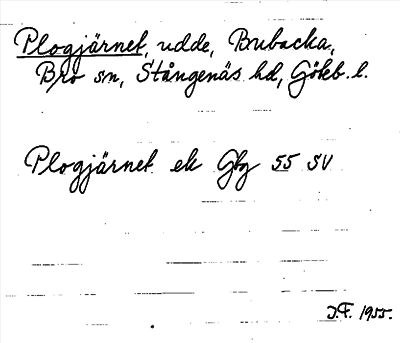 Plogjärnet, udde, Brubacka,
Bro sn, Stångenäs hd, Göteb. l.
Plogjärnet ek Gbg 55 SV
J.F. 1955.